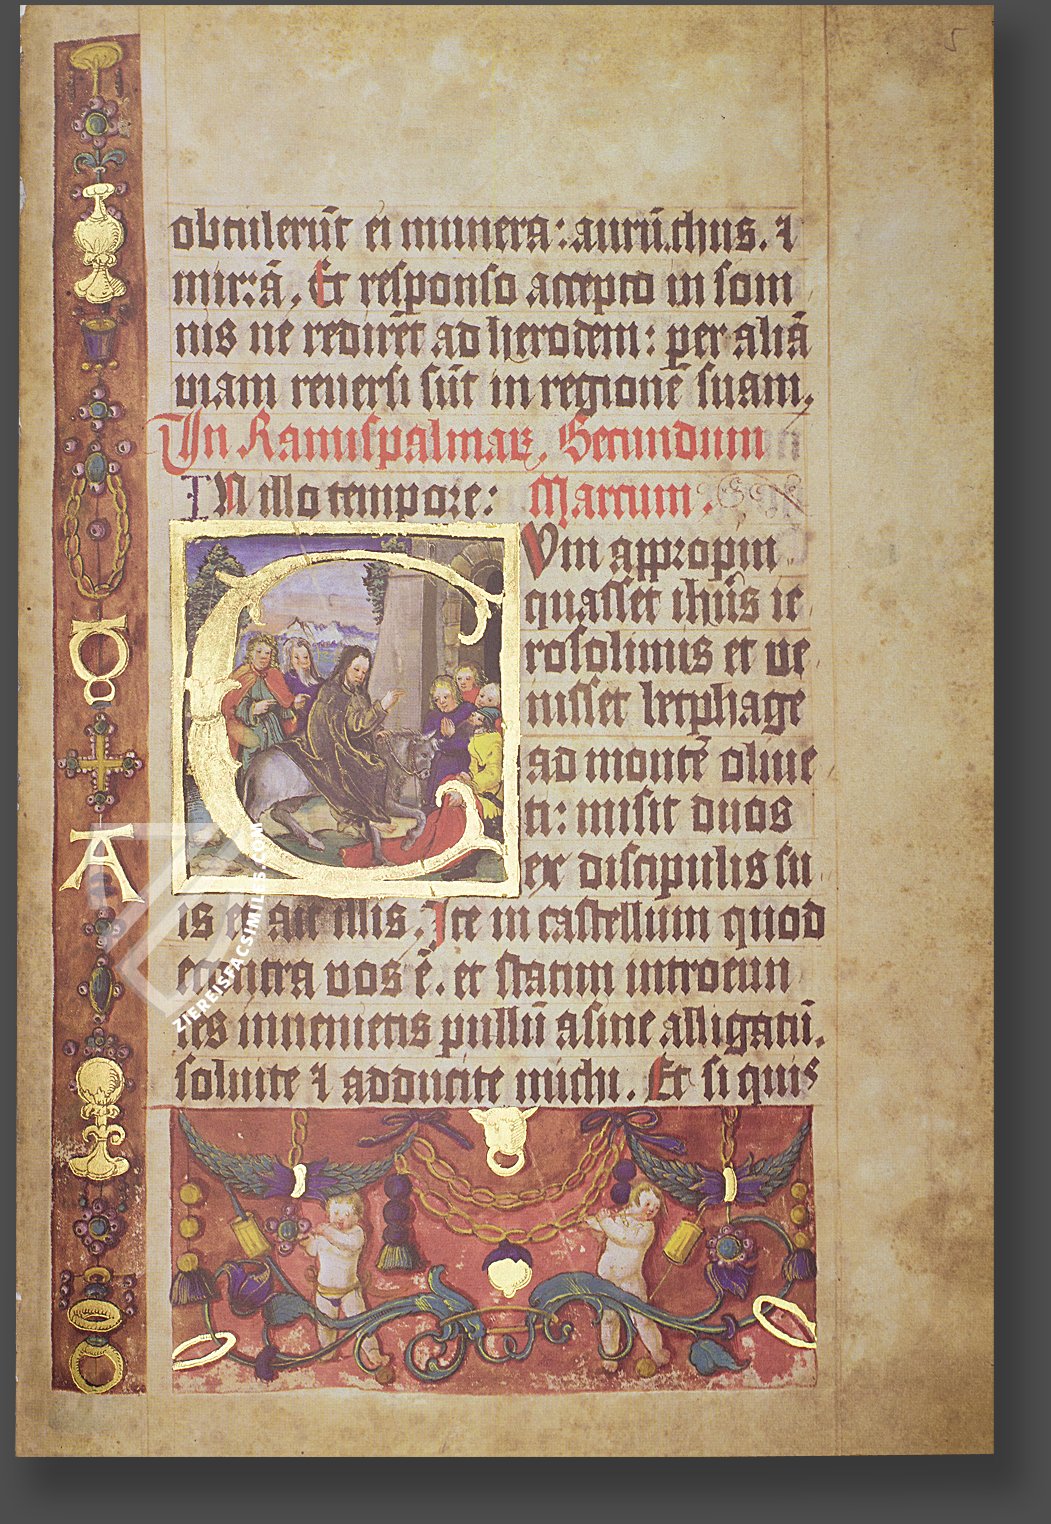 5
obtulerūt ei munera: aurū.thus. ⁊
mirrā. Et responso accepto in som
nis ne redirēt ad herodem: per aliā
uiam reuersi sūt in regionē suam.
In Ramispalmaꝝ. Secundum
IN illo tempore: Marcum.
CVm appropin
quasset ihūs ie
rosolimis et ve
nisset betphage
ad montē oliue
ti: misit duos
ex discipulis su
is et ait illis. Ite in castellum quod
contra vos ē. et statim introeun
tes inuenietis pullū asine alligatū.
soluite ⁊ adducite michi. Et si quis
ZIEREISFACSIMILES.COM